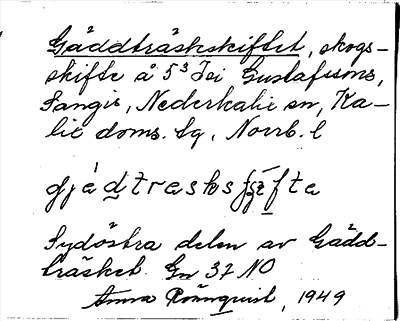 Gäddträskskiftet, skogs-
skifte å 5³ Isi Gustafssons,
Sangis, Nederkalix sn, Ka-
lix doms. sg, Norrb. l
Sydöstra delen av Gädd-
träsket. Gn 37 NO
Anna Rönnqvist, 1949